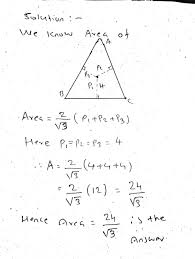 Solution :-
We know Area of
A
P₂ P₃
P₁ 4
B C
Area = 2/√3 (P₁+P₂+P₃)
Here P₁=P₂=P₃=4
∴ A = 2/√3 (4+4+4)
= 2/√3 (12) = 24/√3
Hence Area = 24/√3 is the
answer